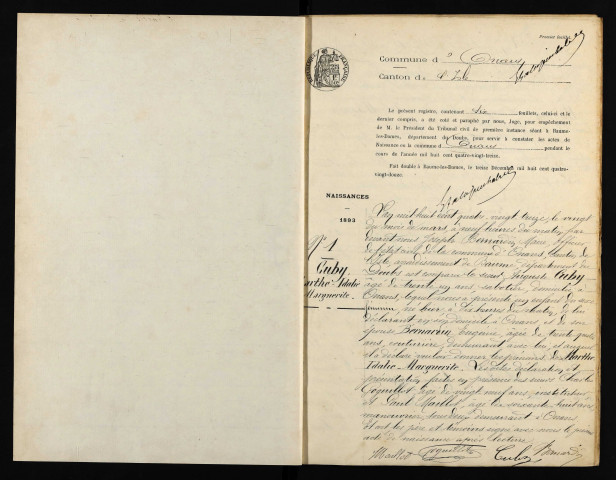 Premier feuillet.
Commune d'Onans
Canton de
Le présent registre, contenant six feuillets, celui-ci et le
dernier compris, a été coté et paraphé par nous, Juge, pour empêchement
de M. le Président du Tribunal civil de première instance séant à Baume-
les-Dames, département du Doubs, pour servir à constater les actes de
Naissance de la commune d'Onans pendant le
cours de l'année mil huit cent quatre-vingt-treize.
Fait double à Baume-les-Dames, le treize Décembre mil huit cent quatre-
vingt-douze.
NAISSANCES
1893
N° 1
Cuby
Marthe Idalie
Marguerite
L'an mil huit cent quatre-vingt treize, le vingt
du mois de mars, à neuf heures du matin, par
devant nous Joseph Bernardin, Maire, officier
de l'état civil de la commune d'Onans, canton de
l'Isle arrondissement de Baume, département du
Doubs, est comparu le sieur Auguste Cuby
âgé de trente un ans, sabotier, domicilié à
Onans, lequel nous a présenté un enfant du sexe
féminin, né hier à dix heures du matin, de lui
déclarant en son domicile à Onans et de son
épouse Bernardin Eugénie, âgée de trente
ans, couturière, demeurant avec lui, et auquel
il a déclaré vouloir donner les prénoms de Marthe
Idalie Marguerite. Les dites déclaration et
présentation faites en présence des sieurs Charles
Coquillot, âgé de vingt neuf ans, instituteur
et Paul Maillot, âgé de soixante huit ans
manouvrier, tous deux demeurant à Onans
et ont les père et témoins signé avec nous le présent
acte de naissance après lecture.
Maillot Coquillot Cuby Bernardin